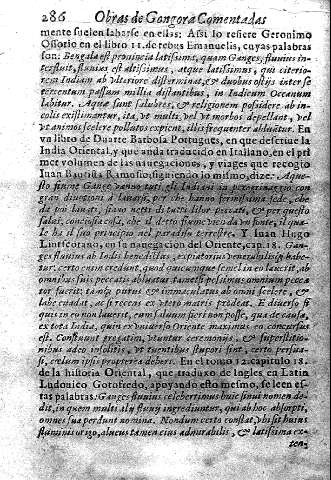 286 Obras de Gongora Comentadas
mente suelen labarse en ellas: Assi lo refiere Geronimo
Ossorio en el libro 11. de rebus Emanuelis, cuyas palabras
son: Bengala est provincia latissima, quam Ganges, fluvius in-
terfluit, fluvius est altissimus, atque latissimus, qui citerio-
rem Indiam ab ulteriore disterminat, & duobus ostijs inter se
tercentum passum millia distantibus, in Indicum Oceanum
labitur. Aquæ sunt salubres, & religionem possidere ab in-
colis existimantur, ita, ut multi, vel ut morbos depellant, vel
ut animos scelere pollutos expient, illis frequenter abluātur. En
vn libro de Duarte Barbosa Portugues, en que descriue la
India Oriental, y que anda traducido en Italiano, en el pri
mer volumen de las nauegaciones, y viages que recogiò
Iuan Bautista Ramosio, siguiendo lo mismo, dize: Aque-
sto fiume Gange vanno tuti gli Indiani in peregrinaggio con
gran diuotioni á lauarsi, per che hanno fermissima fede, che
da poi lauati, siano netti di tutti libor peccati, & per questo
salui; conciosia cosa, che il certo fiume proceda vn fonte, il qua-
le há il suo principio nel paradiso terrestre. Y Iuan Hugo
Lintscotano, en la nauegacion del Oriente, cap. 18. Gan-
ges fluvius ab Indis benedictus, & expiatorius venerabilisq; habe-
tur. certo enim credunt, quod quicunque semel in eo lauerit, ab
omnibus suis peccatis ablutus
tor fuerit; tamen purus & immaculatus ab omni scelere, &
labe euadat, ac si recens ex vtero matris prodeat. E diuerso si
quis in eo non lauerit, eum saluum fieri non posse, qua de causa,
ex tota India, quin ex vniuerso Oriente maximus eo concursus
est. Confluunt gregatim, vtuntur ceremonijs, & superstitio-
nibus adeo insolitis, vt tuentibus stupori sint, certo persua-
si, cælum ipsis propterea deberi. En el tomo 12. capitulo 18.
de la historia Oriental, que traduxo de Ingles en Latin
Ludouico Gotofredo, apoyando esto mesmo, se leen es-
tas palabras. Ganges fluvius celeberrimus huic sinui nomen de-
dit, in quem multi alij fluvij ingrediuntur, qui ab hoc absorpti,
omnes sua perdunt nomina. Nondum certo constat, vbi sit huius
fluminis origo, alueus tamen eius admirabilis, & latissima ex-
ten-